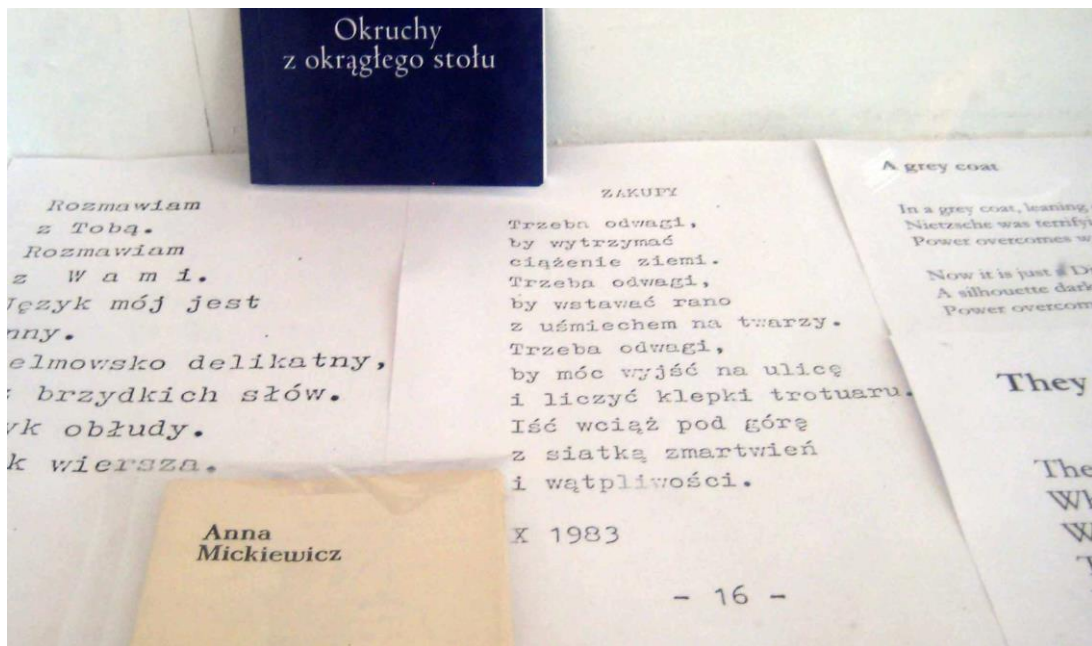 Okruchy
z okrągłego stołu
Rozmawiam
z Tobą.
Rozmawiam
z W a m i.
mój jest
delikatny,
brzydkich słów.
obłudy.
wiersza.
Anna
Mickiewicz
ZAKUPY
Trzeba odwagi,
by wytrzymać
ciążenie ziemi.
Trzeba odwagi,
by wstawać rano
z uśmiechem na twarzy.
Trzeba odwagi,
by móc wyjść na ulicę
i liczyć klepki trotuaru.
Iść wciąż pod górę
z siatką zmartwień
i wątpliwości.
X 1983
- 16 -
A grey coat
In a grey coat, leaning
Nietzsche was
Power overcomes
Now it is just a
A silhouette
Power
They